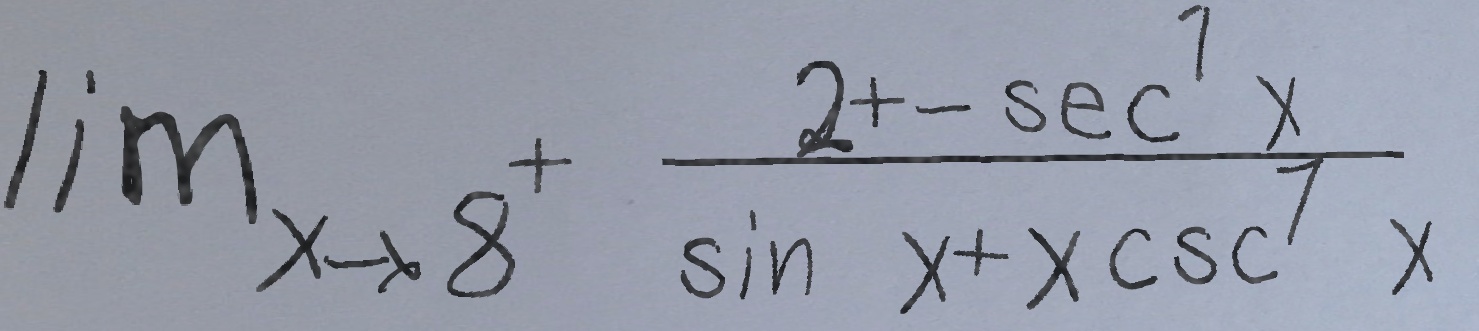 lim x→8⁺ (2 + - sec⁷ x) / (sin x + x csc⁷ x)